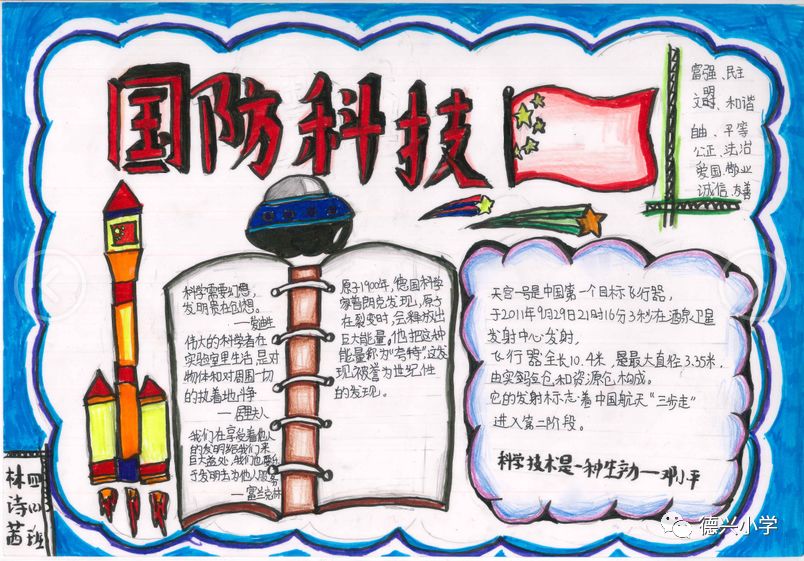 国防科技
富强、民主
文明、和谐
自由、平等
公正、法治
爱国、敬业
诚信、友善
科学需要幻想,
发明贵在创想。
——爱迪生
伟大的科学者在
实验室里生活,是对
物体和对周围一切
的执着地斗争
——居里夫人
我们在享受着他人
的发明给我们来
巨大益处,我们也要乐
于发明去为他人服务
——富兰克林
原子1900年,德国科学
家普朗克发现,原子
在裂变时,会释放出
巨大能量。他把这种
能量称为"考特",这发
现被誉为世纪性
的发现。
天宫一号是中国第一个目标飞行器,
于2011年9月29日21时16分3秒在酒泉卫星
发射中心发射,
飞行器全长10.4米,是最大直径3.35米,
由实验舱和资源仓构成。
它的发射标志着中国航天"三步走"
进入第二阶段。
科学技术是一种生动——邓小平
四四班
林诗茜
德兴小学